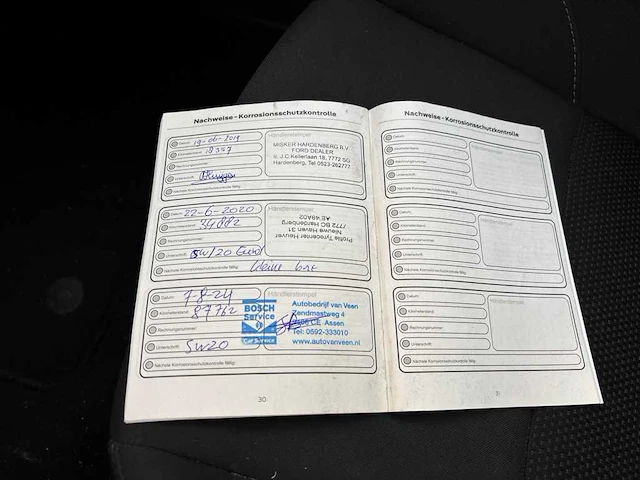 Nachweise - Korrosionsschutzkontrolle
Datum: 19-06-2019
Kilometerstand: 18357
Rechnungsnummer:
Unterschrift:
Nächste Korrosionsschutzkontrolle fällig:
Händlerstempel
MISKER HARDENBERG B.V.
FORD DEALER
J.C. Kellerlaan 18, 7772 SG
Hardenberg, Tel 0523-262777
Datum: 22-6-2020
Kilometerstand:
Rechnungsnummer:
Unterschrift: 5W/20
Nächste Korrosionsschutzkontrolle fällig: kleine
Händlerstempel
Profile Tyrecenter Heuver
Nieuwe Haven 31
7772 BC Hardenberg
Datum: 7-8-24
Kilometerstand: 87762
Rechnungsnummer:
Unterschrift: 5W20
Nächste Korrosionsschutzkontrolle fällig:
Händlerstempel
BOSCH
Service
Car Service
Autobedrijf van Veen
Zendmastweg 4
CE Assen
Tel: 0592-333010
www.autovanveen.nl
30
Nachweise - Korrosionsschutzkontrolle
Datum:
Kilometerstand:
Rechnungsnummer:
Unterschrift:
Nächste Korrosionsschutzkontrolle fällig:
Händlerstempel
Datum:
Kilometerstand:
Rechnungsnummer:
Unterschrift:
Nächste Korrosionsschutzkontrolle fällig:
Händlerstempel
Datum:
Kilometerstand:
Rechnungsnummer:
Unterschrift:
Nächste Korrosionsschutzkontrolle fällig:
Händlerstempel